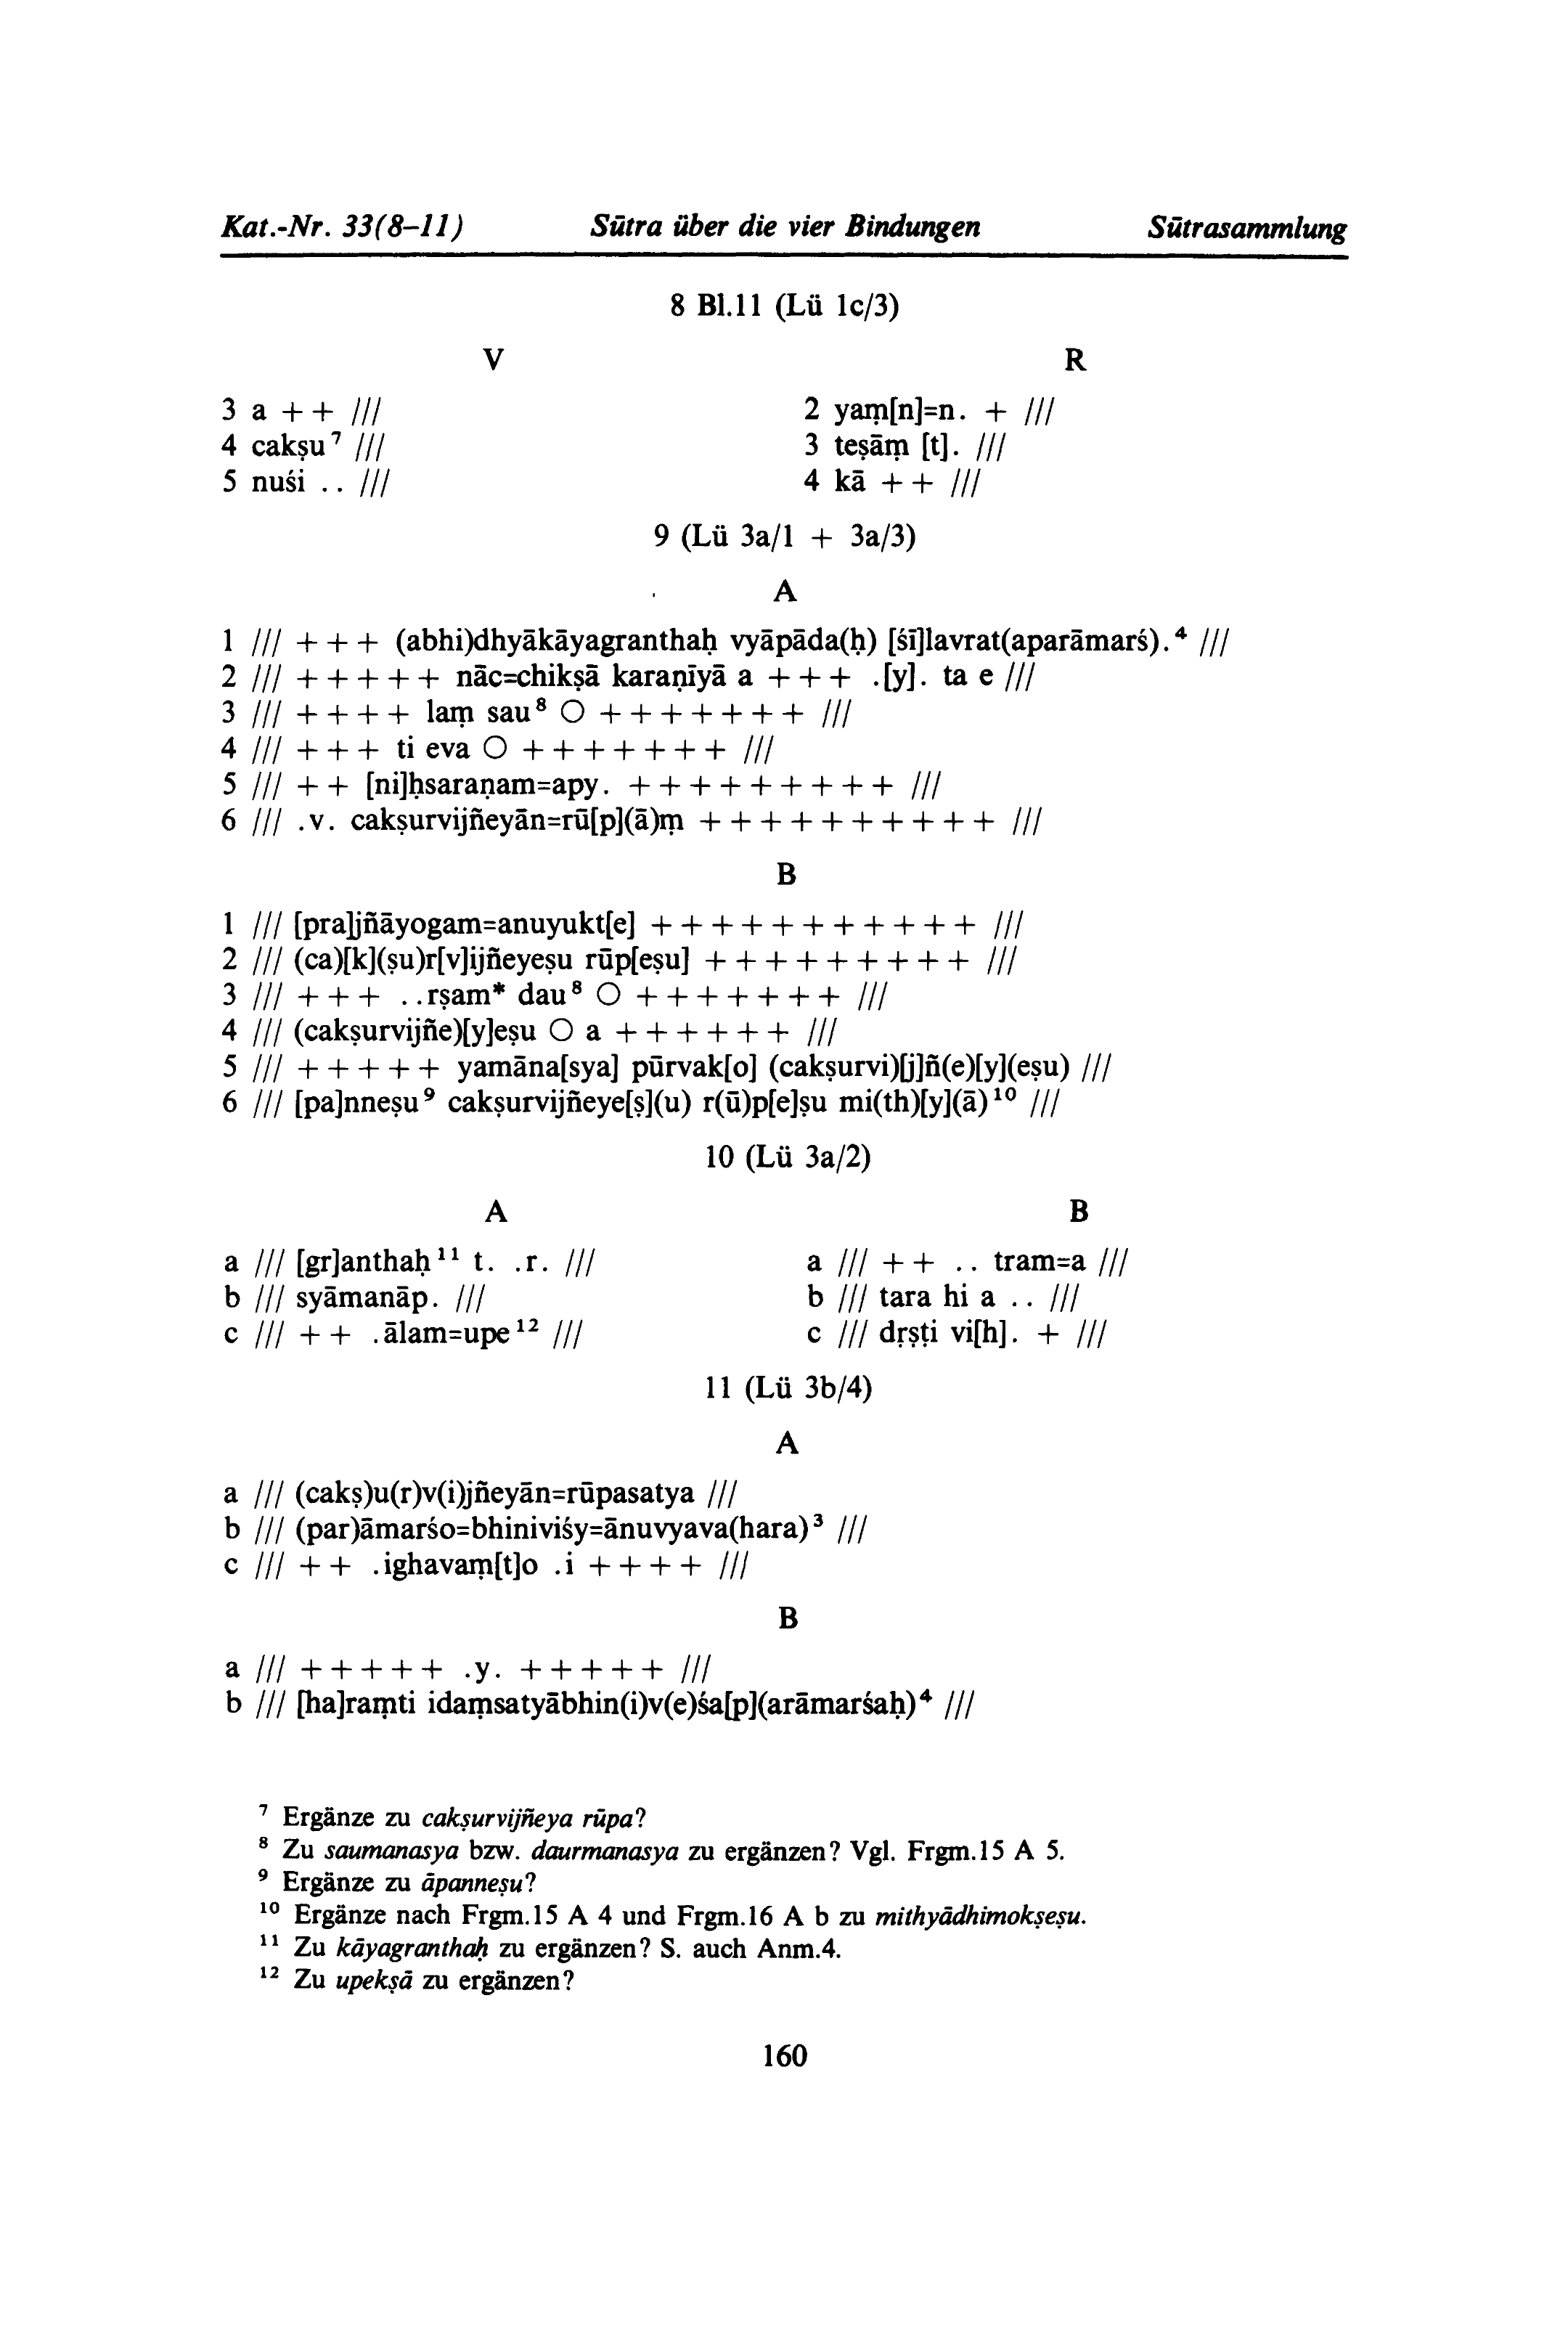 Kat.-Nr. 33(8–11) Sūtra über die vier Bindungen Sūtrasammlung
8 Bl.11 (Lü 1c/3)
V R
3 a + + /// 2 yaṃ[n]=n. + ///
4 cakṣu⁷ /// 3 teṣāṃ [t]. ///
5 nuśi .. /// 4 kā + + ///
9 (Lü 3a/1 + 3a/3)
A
1 /// + + + (abhi)dhyākāyagranthaḥ vyāpāda(ḥ) [śī]lavrat(aparāmarś).⁴ ///
2 /// + + + + + nāc=chikṣā karaṇīyā a + + + .[y]. ta e ///
3 /// + + + + laṃ sau⁸ ○ + + + + + + + ///
4 /// + + + ti eva ○ + + + + + + + ///
5 /// + + [ni]ḥsaraṇam=apy. + + + + + + + + + ///
6 /// .v. cakṣurvijñeyān=rū[p](ā)ṃ + + + + + + + + + + ///
B
1 /// [pra]jñāyogam=anuyukt[e] + + + + + + + + + + + ///
2 /// (ca)[k](ṣu)r[v]ijñeyeṣu rūp[eṣu] + + + + + + + + + ///
3 /// + + + ..rṣam* dau⁸ ○ + + + + + + + ///
4 /// (cakṣurvijñe)[y]eṣu ○ a + + + + + + ///
5 /// + + + + + yamāna[sya] pūrvak[o] (cakṣurvi)[j]ñ(e)[y](eṣu) ///
6 /// [pa]nneṣu⁹ cakṣurvijñeye[ṣ](u) r(ū)p[e]ṣu mi(th)[y](ā)¹⁰ ///
10 (Lü 3a/2)
A B
a /// [gr]anthaḥ¹¹ t. .r. /// a /// + + .. tram=a ///
b /// syāmanāp. /// b /// tara hi a .. ///
c /// + + .ālam=upe¹² /// c /// dṛṣṭi vi[h]. + ///
11 (Lü 3b/4)
A
a /// (cakṣ)u(r)v(i)jñeyān=rūpasatya ///
b /// (par)āmarśo=bhiniviśy=ānuvyava(hara)³ ///
c /// + + .ighavaṃ[t]o .i + + + + ///
B
a /// + + + + + .y. + + + + + ///
b /// [ha]raṃti idaṃsatyābhin(i)v(e)śa[p](arāmarśaḥ)⁴ ///
⁷ Ergänze zu cakṣurvijñeya rūpa?
⁸ Zu saumanasya bzw. daurmanasya zu ergänzen? Vgl. Frgm.15 A 5.
⁹ Ergänze zu āpanneṣu?
¹⁰ Ergänze nach Frgm.15 A 4 und Frgm.16 A b zu mithyādhimokṣeṣu.
¹¹ Zu kāyagranthaḥ zu ergänzen? S. auch Anm.4.
¹² Zu upekṣā zu ergänzen?
160